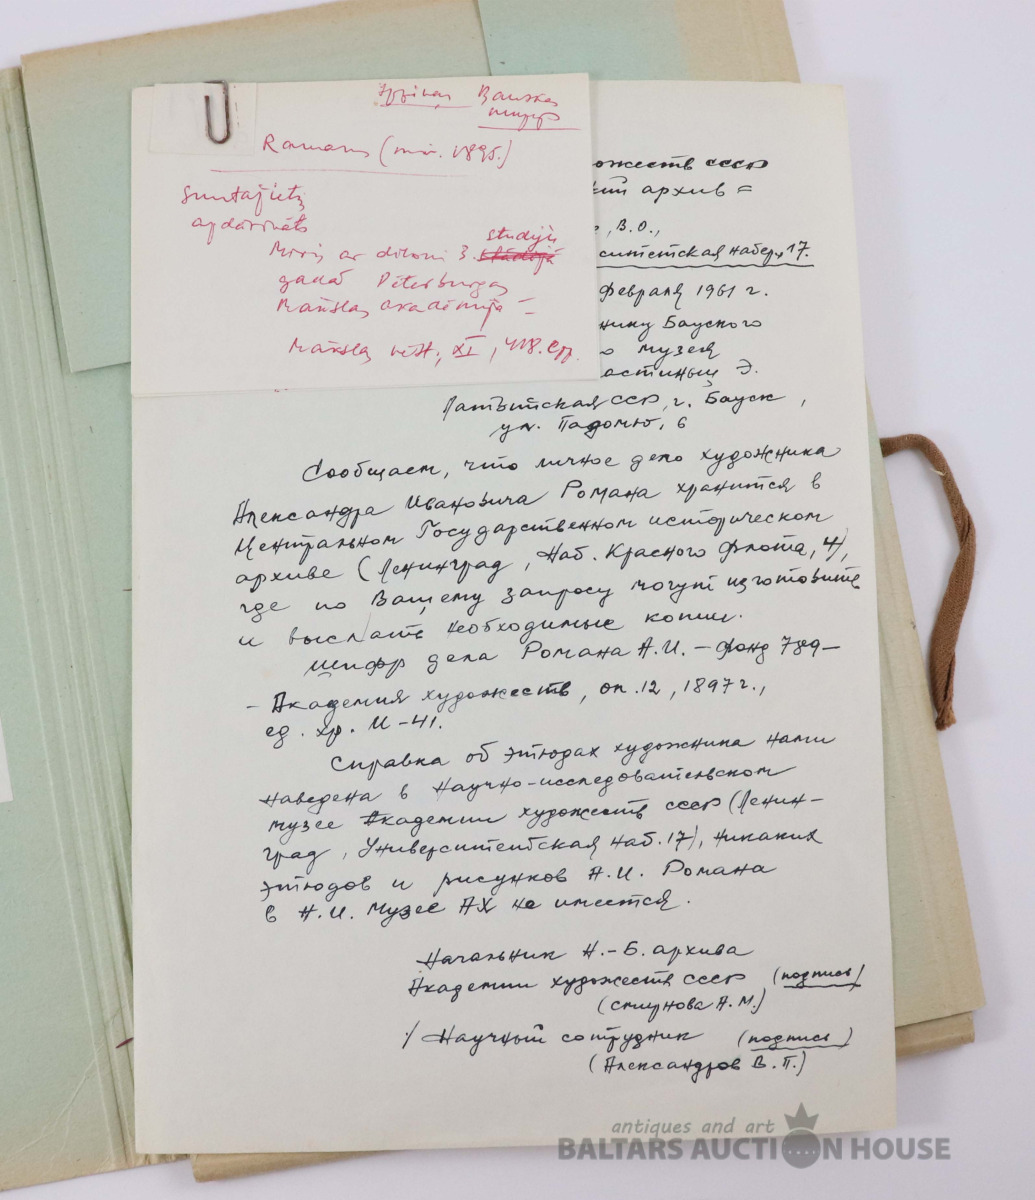 Bauskas
Ramans (mir. 1895.)
Suntažietis
apdāvināts
studiju
Miris ar diloni 3.
gadā Pēterburgas
Mākslas akadēmijā –
Mākslas vēst., XI, 418. lpp.
ожеств СССР
кий архив =
, В.О.,
ситетская набер., 17.
февраля 1961 г.
нику Бауского
о музея
Э.
Латвийская ССР, г. Бауск,
ул. Падомю, 6
Сообщаем, что личное дело художника
Александра Ивановича Романа хранится в
Центральном Государственном историческом
архиве (Ленинград, Наб. Красного Флота, 4),
где по Вашему запросу могут изготовить
и выслать необходимые копии.
Шифр дела Романа А.И. – Фонд 789 –
– Академия художеств, оп. 12, 1897 г.,
ед. хр. И – 41.
Справка об этюдах художника нами
наведена в Научно-исследовательском
музее Академии художеств СССР (Ленин-
град, Университетская наб. 17), никаких
этюдов и рисунков А.И. Романа
в Н.И. музее АХ не имеется.
Начальник Н.-Б. архива
Академии художеств СССР (подпись)
(Смирнова А.М.)
/ Научный сотрудник (подпись)
(Александров В.П.)
antiques and art
BALTARS AUCTION HOUSE